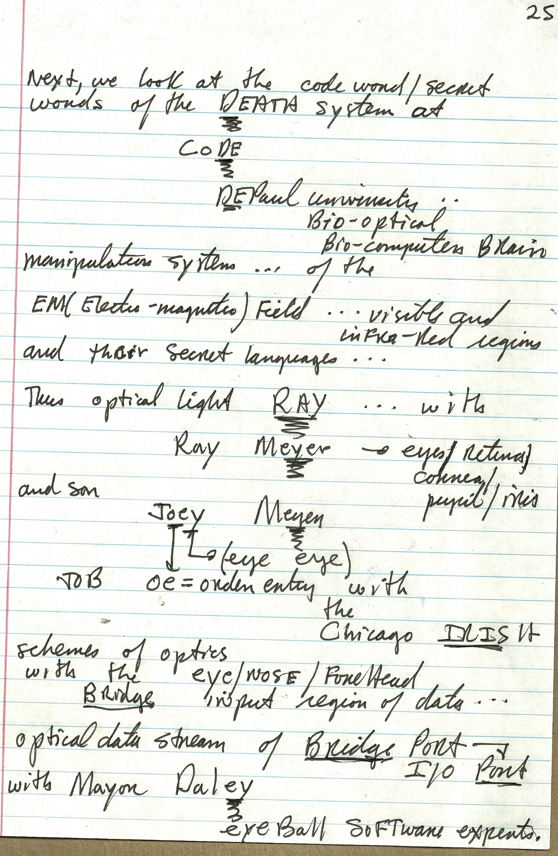 25
Next, we look at the code word/secret
words of the DEATH system at
CODE
DEPaul university ..
Bio-optical
Bio-computer Brain
manipulation system ... of the
EM(Electro-magnetic) Field ... visible and
inFRa-Red regions
and their secret languages ...
Thus optical light RAY ... with
Ray Meyer → eyes/retina/
cornea/
pupil/iris
and son
Joey Meyer
(eye eye)
JOB oe = order entry with
the
Chicago IRISH
schemes of optics
with the eye/NOSE/ForeHead
Bridge input region of data ...
optical data stream of Bridge Port →
I/O Port
with Mayor Daley
eyeBall SoFTware experts.